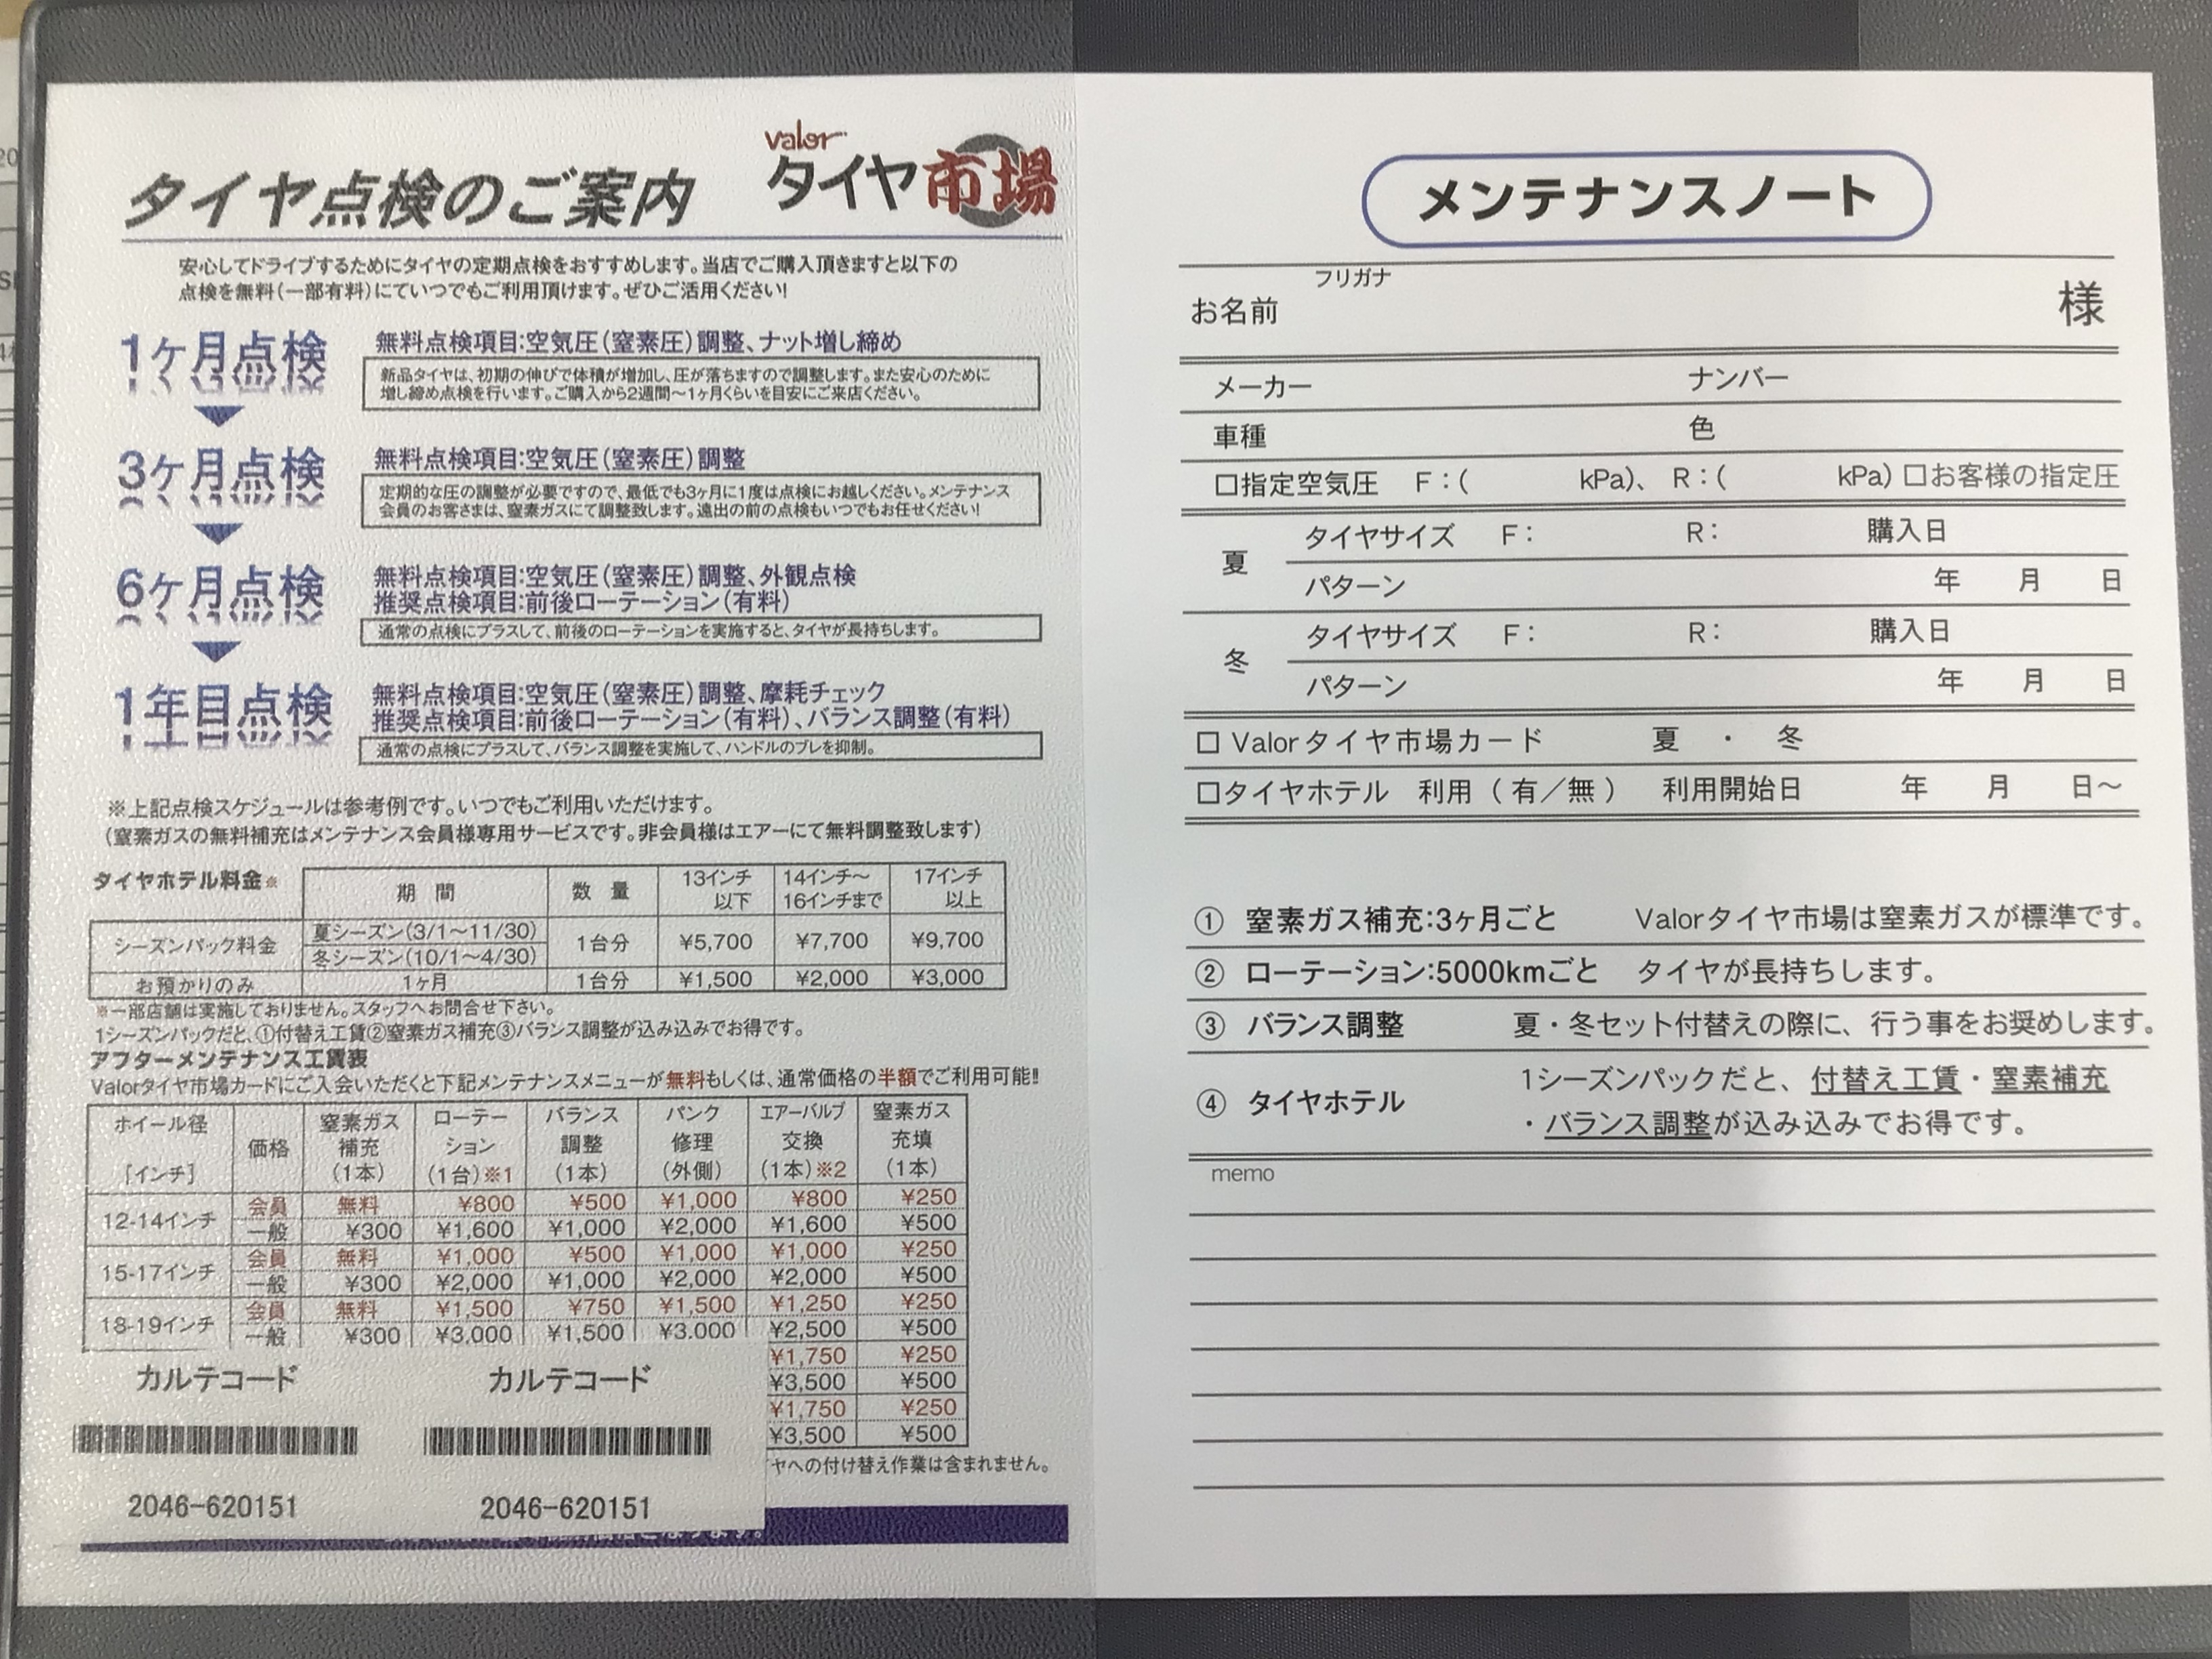 valor
タイヤ点検のご案内 タイヤ市場
安心してドライブするためにタイヤの定期点検をおすすめします。当店でご購入頂きますと以下の
点検を無料(一部有料)にていつでもご利用頂けます。ぜひご活用ください!
1ヶ月点検
無料点検項目:空気圧(窒素圧)調整、ナット増し締め
新品タイヤは、初期の伸びで体積が増加し、圧が落ちますので調整します。また安心のために
増し締め点検を行います。ご購入から2週間～1ヶ月くらいを目安にご来店ください。
3ヶ月点検
無料点検項目:空気圧(窒素圧)調整
定期的な圧の調整が必要ですので、最低でも3ヶ月に1度は点検にお越しください。メンテナンス
会員のお客さまは、窒素ガスにて調整致します。遠出の前の点検もいつでもお任せください!
6ヶ月点検
無料点検項目:空気圧(窒素圧)調整、外観点検
推奨点検項目:前後ローテーション(有料)
通常の点検にプラスして、前後のローテーションを実施すると、タイヤが長持ちします。
1年目点検
無料点検項目:空気圧(窒素圧)調整、摩耗チェック
推奨点検項目:前後ローテーション(有料)、バランス調整(有料)
通常の点検にプラスして、バランス調整を実施して、ハンドルのブレを抑制。
※上記点検スケジュールは参考例です。いつでもご利用いただけます。
(窒素ガスの無料補充はメンテナンス会員様専用サービスです。非会員様はエアーにて無料調整致します)
タイヤホテル料金※
期 間 数 量 13インチ以下 14インチ～16インチまで 17インチ以上
シーズンパック料金 夏シーズン(3/1～11/30) 1台分 ¥5,700 ¥7,700 ¥9,700
冬シーズン(10/1～4/30)
お預かりのみ 1ヶ月 1台分 ¥1,500 ¥2,000 ¥3,000
※一部店舗は実施しておりません。スタッフへお問合せ下さい。
1シーズンパックだと、①付替え工賃②窒素ガス補充③バランス調整が込み込みでお得です。
アフターメンテナンス工賃表
Valorタイヤ市場カードにご入会いただくと下記メンテナンスメニューが無料もしくは、通常価格の半額でご利用可能!!
ホイール径[インチ] 価格 窒素ガス補充(1本) ローテーション(1台)※1 バランス調整(1本) パンク修理(外側) エアーバルブ交換(1本)※2 窒素ガス充填(1本)
12-14インチ 会員 無料 ¥800 ¥500 ¥1,000 ¥800 ¥250
一般 ¥300 ¥1,600 ¥1,000 ¥2,000 ¥1,600 ¥500
15-17インチ 会員 無料 ¥1,000 ¥500 ¥1,000 ¥1,000 ¥250
一般 ¥300 ¥2,000 ¥1,000 ¥2,000 ¥2,000 ¥500
18-19インチ 会員 無料 ¥1,500 ¥750 ¥1,500 ¥1,250 ¥250
一般 ¥300 ¥3,000 ¥1,500 ¥3,000 ¥2,500 ¥500
¥1,750 ¥250
¥3,500 ¥500
¥1,750 ¥250
¥3,500 ¥500
ヤへの付け替え作業は含まれません。
カルテコード カルテコード
2046-620151 2046-620151
メンテナンスノート
フリガナ
お名前 様
メーカー ナンバー
車種 色
□指定空気圧 F:( kPa)、 R:( kPa) □お客様の指定圧
夏 タイヤサイズ F: R: 購入日
パターン 年 月 日
冬 タイヤサイズ F: R: 購入日
パターン 年 月 日
□ Valorタイヤ市場カード 夏 ・ 冬
□タイヤホテル 利用 ( 有／無 ) 利用開始日 年 月 日～
① 窒素ガス補充:3ヶ月ごと Valorタイヤ市場は窒素ガスが標準です。
② ローテーション:5000kmごと タイヤが長持ちします。
③ バランス調整 夏・冬セット付替えの際に、行う事をお奨めします。
④ タイヤホテル 1シーズンパックだと、付替え工賃・窒素補充
・バランス調整が込み込みでお得です。
memo